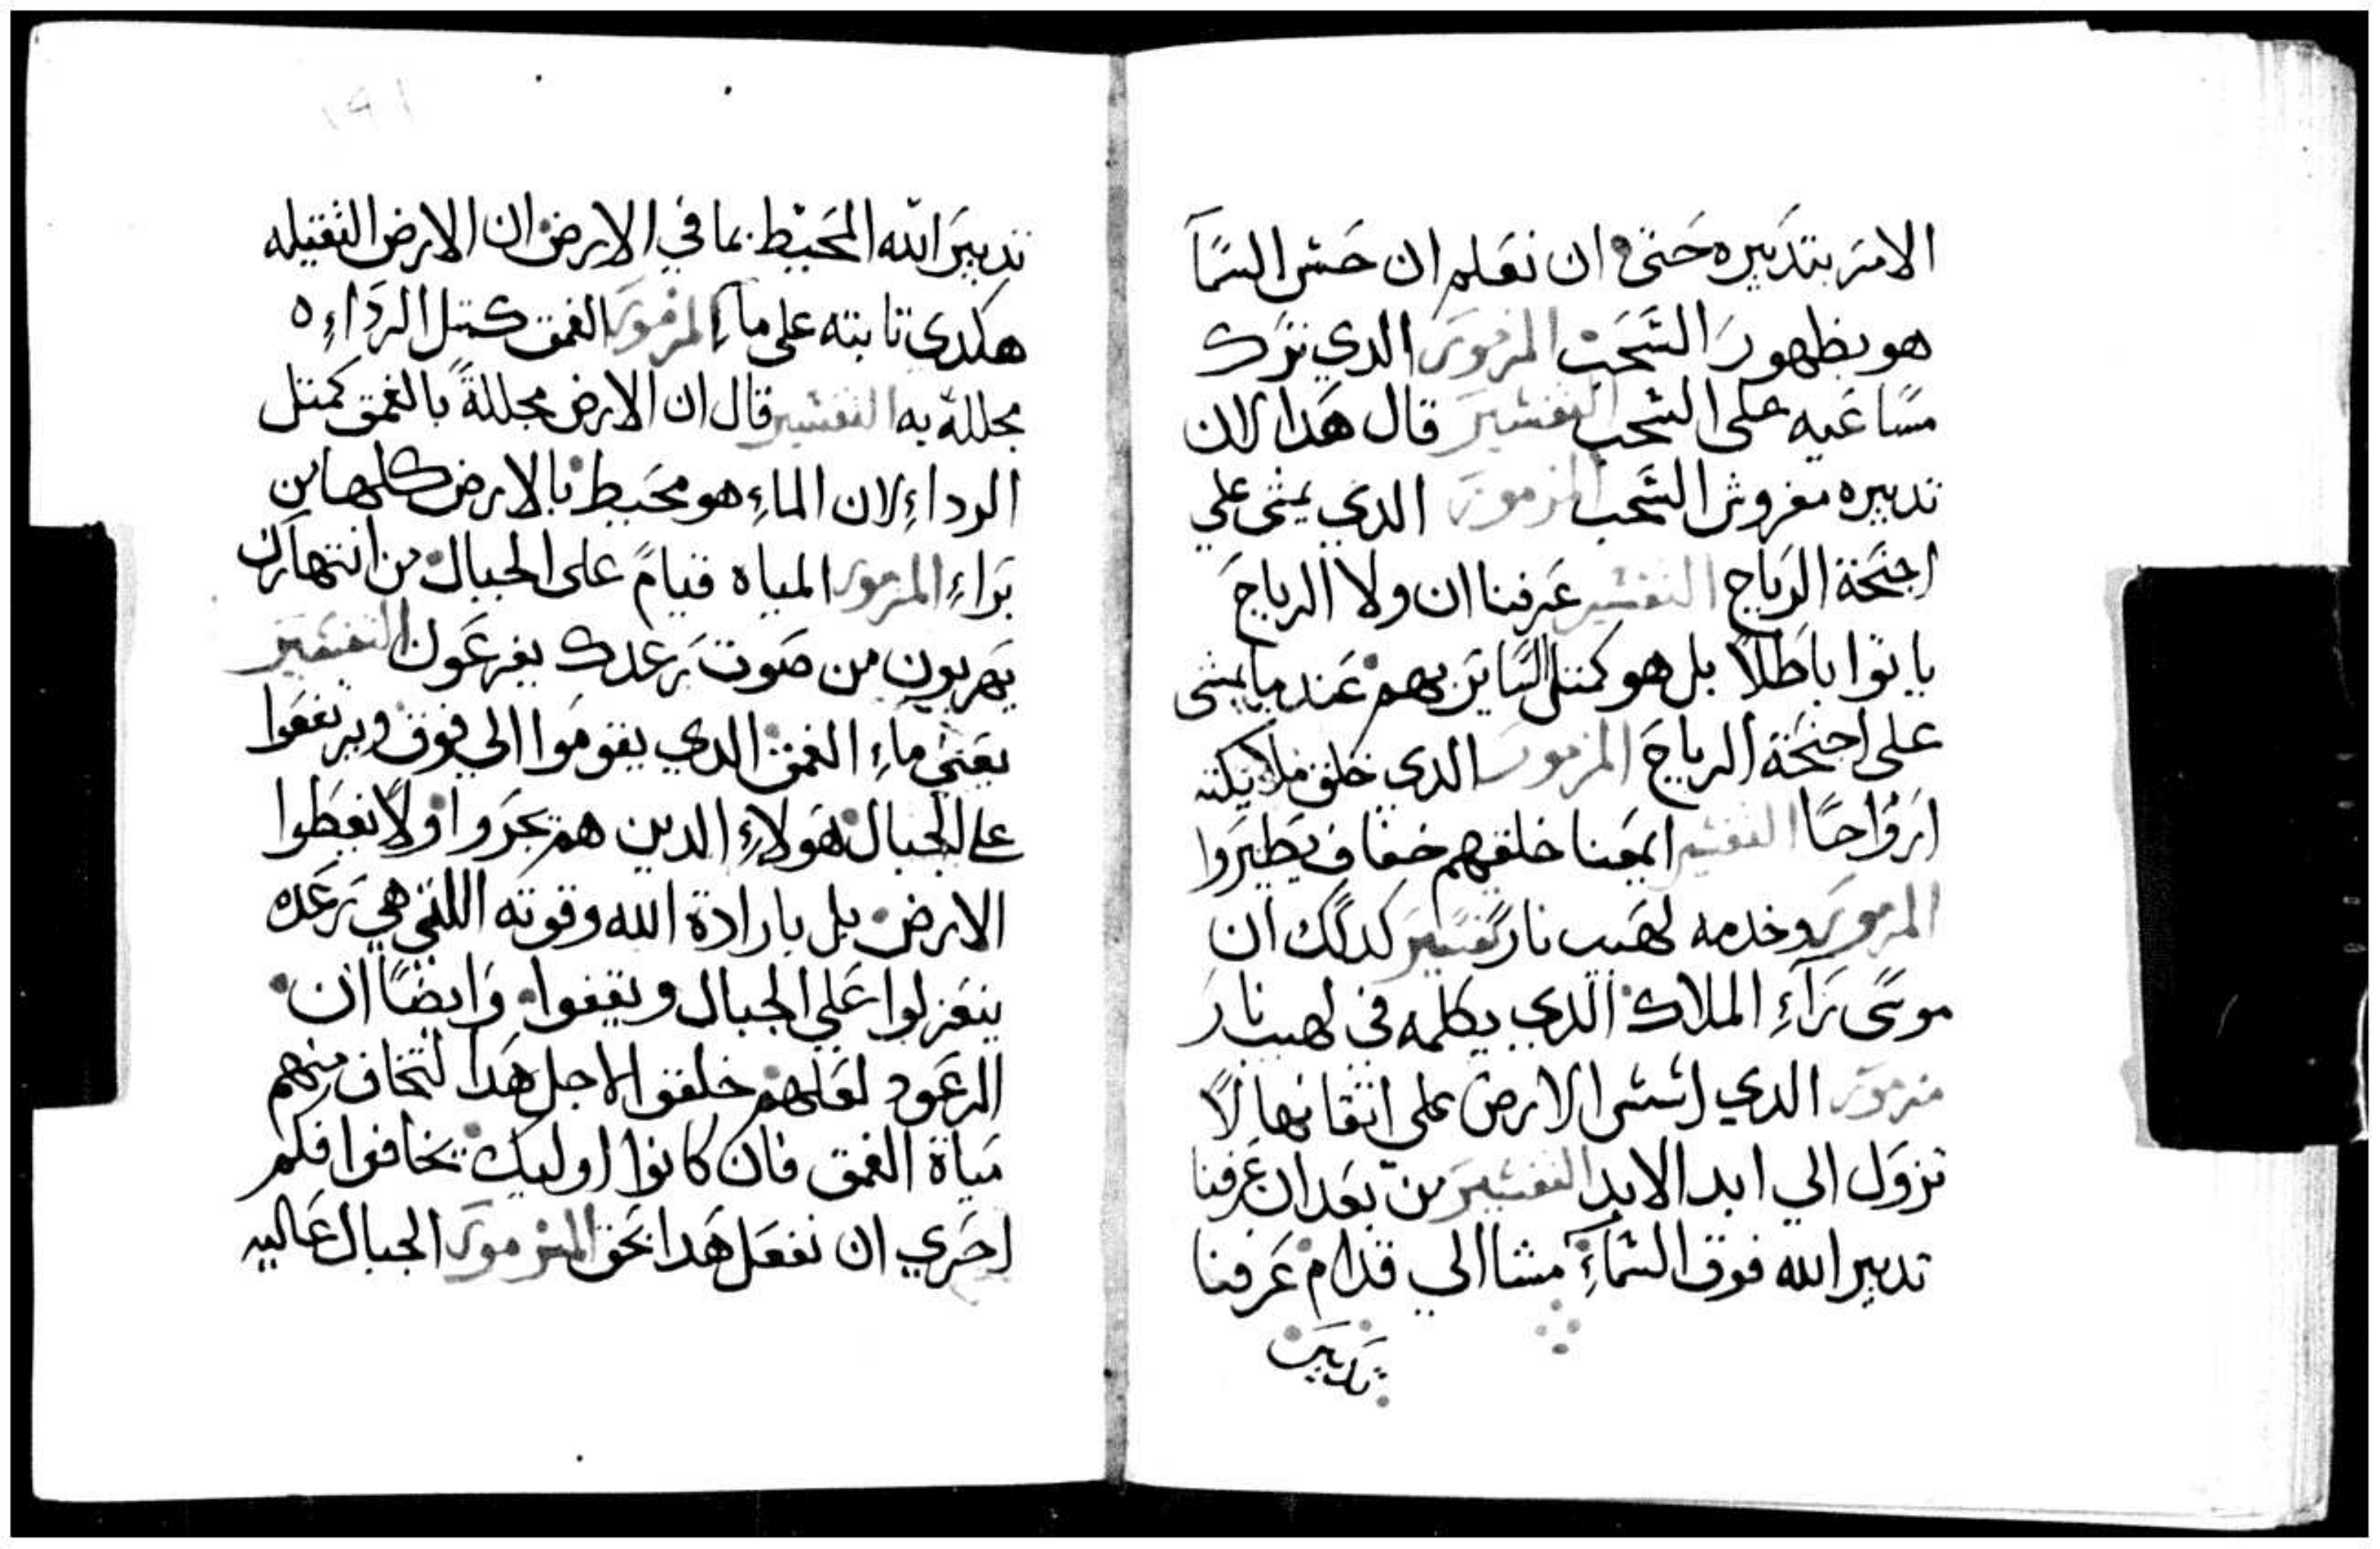 الامر بتدبيره حتى ان نعلم ان حسن السمآ
هو بظهور السحب المزمور الدي ترك
مساعيه على السحب التفسير قال هدا لان
تدبيره مفروش السحب المزمور الدي يمشى على
اجنحة الرياح التفسير عرفنا ان ولا الرياح
ياتوا باطلاً بل هو كمتل السايق بهم عندما يمشى
على اجنحة الرياح المزمور الدي خلق ملايكته
ارواحًا التفسير ايمعنا خلقهم خفاف يطيروا
المزمور وخدمه لهيب نار تفسير كدلك ان
موسى رآءِ الملاك الدي يكلمه في لهيب نار
مزمور الدي اسس الارض على اتقانها لا
تزول الي ابد الابد التفسير من بعد ان عرفنا
تدبير الله فوق السمآءِ مشا الي قدام عرفنا
تدبير
١٩١
تدبير الله المحيط بما في الارض ان الارض الثقيله
هكدي تابته على مآءِ المزمور الغمق كتل الرداءِ ه
مجللة به التفسير قال ان الارض مجللةً بالغمق كمتل
الرداءِ لان الماءِ هو محيط بالارض كلها من
براءِ المزمور المياه قيامً على الجبال من انتهارك
يهربون من صوت رعدك يفزعون التفسير
يعني ماءِ الغمق الدي يقوموا الي فوق ويرتفعوا
على الجبال هولاءِ الدين هم يجروا ولا يغطوا
الارض بل بارادة الله وقوته اللتي هي رعده
ينعزلوا على الجبال ويقفوا وايضًا ان
الرعود لعلهم خلقوا لاجل هدا لتخاف منهم
مياة الغمق فان كانوا اوليك يخافوا فكم
احري ان نفعل هدا بحق المزمور الجبال عاليه